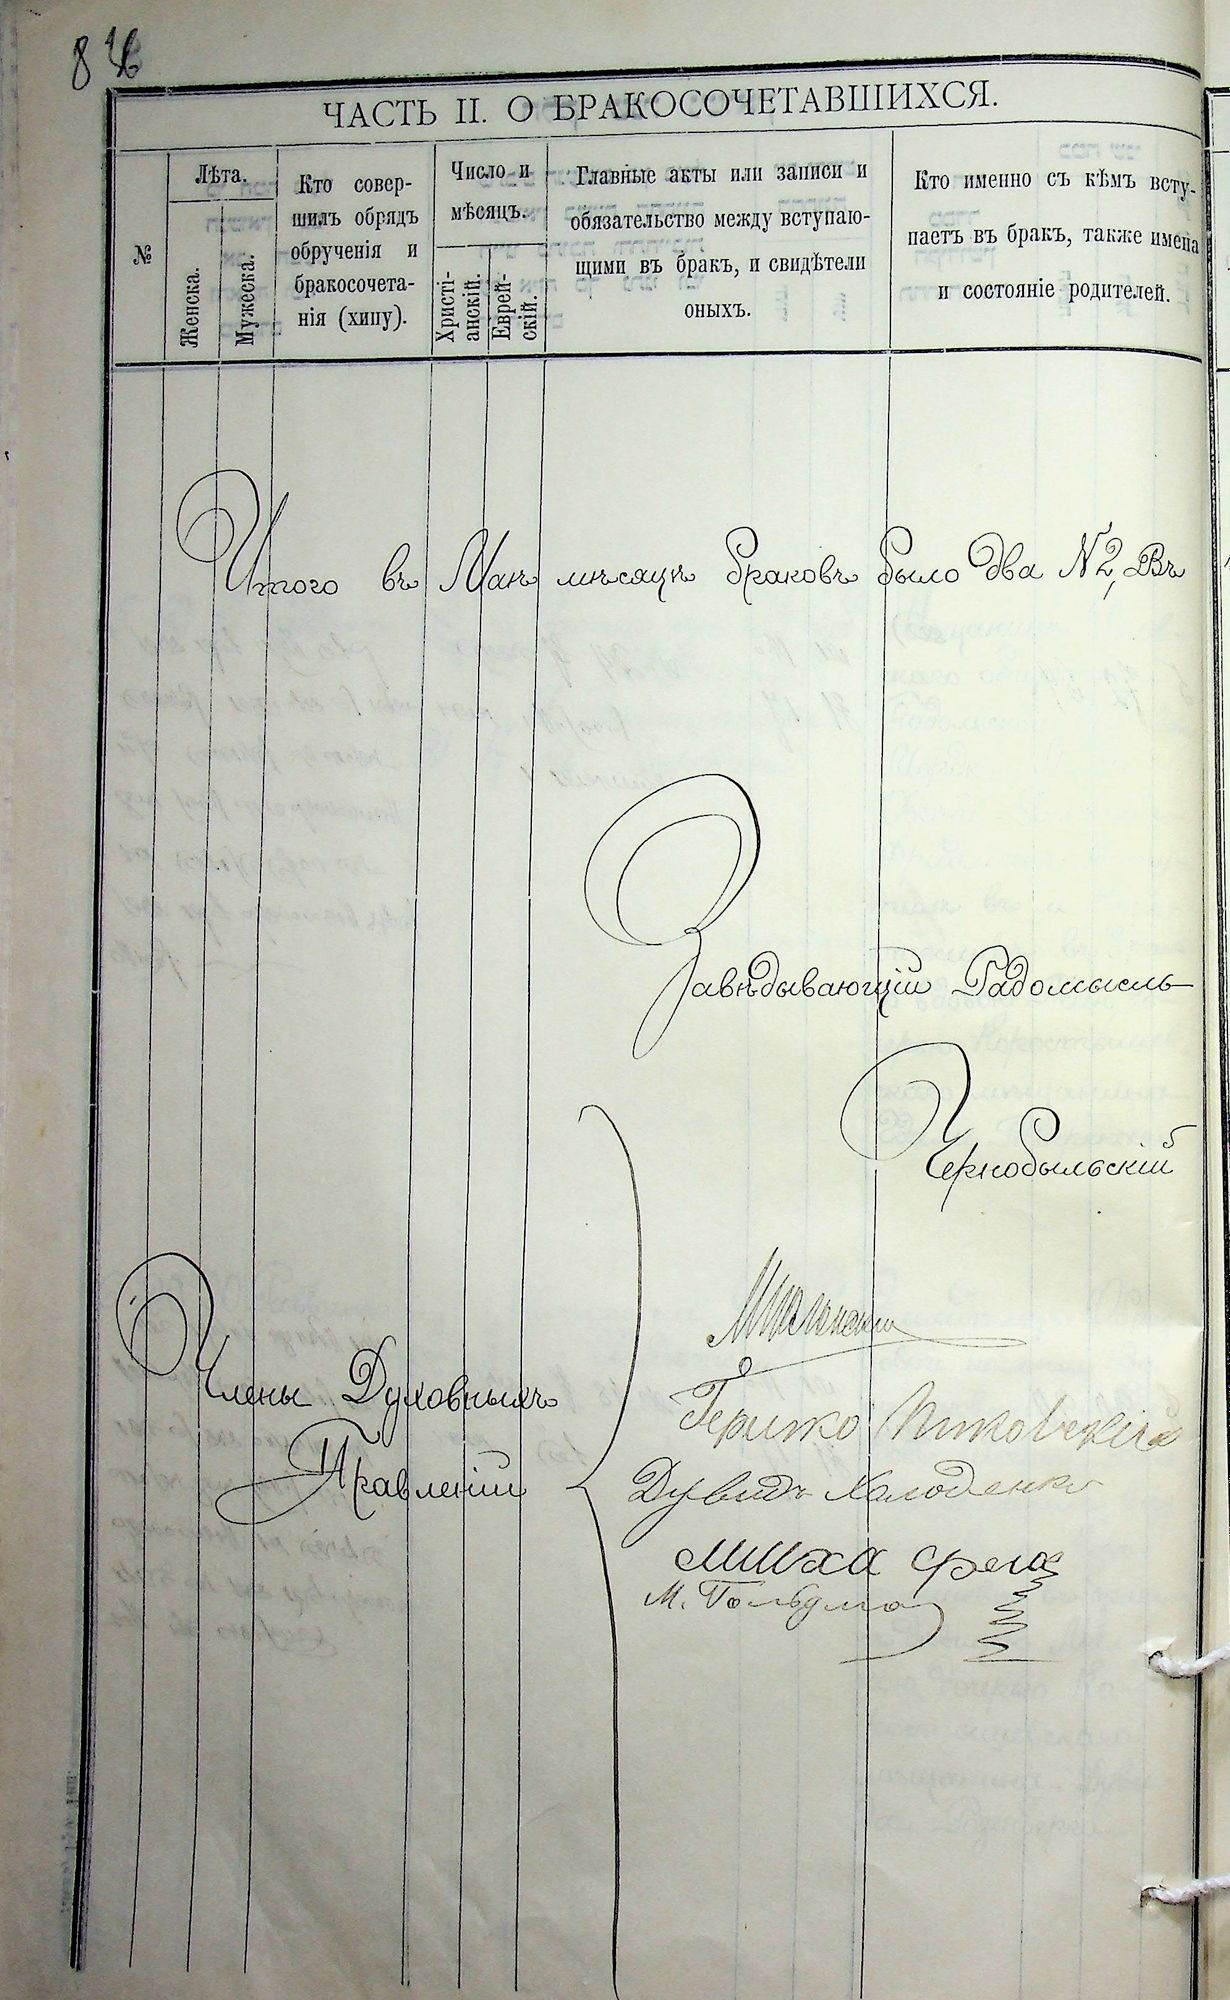 ЧАСТЬ II. О БРАКОСОЧЕТАВШИХСЯ.
№
Лѣта.
Женска.
Мужеска.
Кто совер-
шилъ обрядъ
обрученія и
бракосочета-
нія (хипу).
Число и
мѣсяцъ.
Христі-
анскій.
Еврей-
скій.
Главные акты или записи и
обязательство между вступаю-
щими въ бракъ, и свидѣтели
оныхъ.
Кто именно съ кѣмъ всту-
паетъ въ бракъ, также имена
и состояніе родителей.
Итого въ Маѣ мѣсяцѣ браковъ было два № 2, Въ
Завѣдывающій Радомысль
Чернобыльскій
Члены Духовныхъ
Правленій
Гершко
Дувидъ Холоденко
М. Гольдма